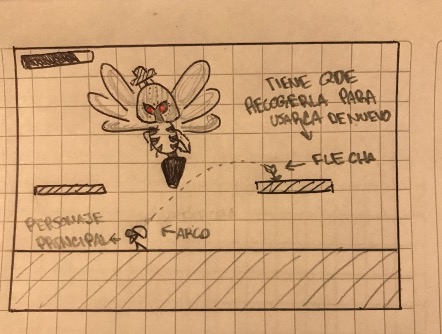 TIENE QUE
RECOGERLA PARA
USARLA DE NUEVO
FLECHA
PERSONAJE
PRINCIPAL
ARCO